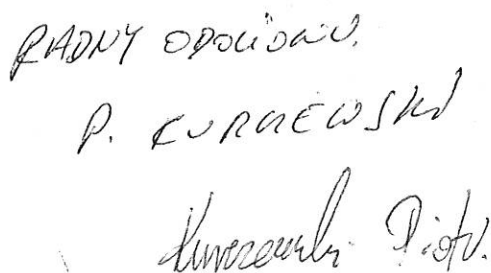 RADNY OPOLIONU.
P. KURCZEWSKI
Kurczewski Piotr.